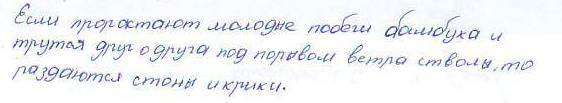 Если проростают молодые побеги бамбука и
трутся друг о друга под порывом ветра стволы, то
раздаются стоны и крики.